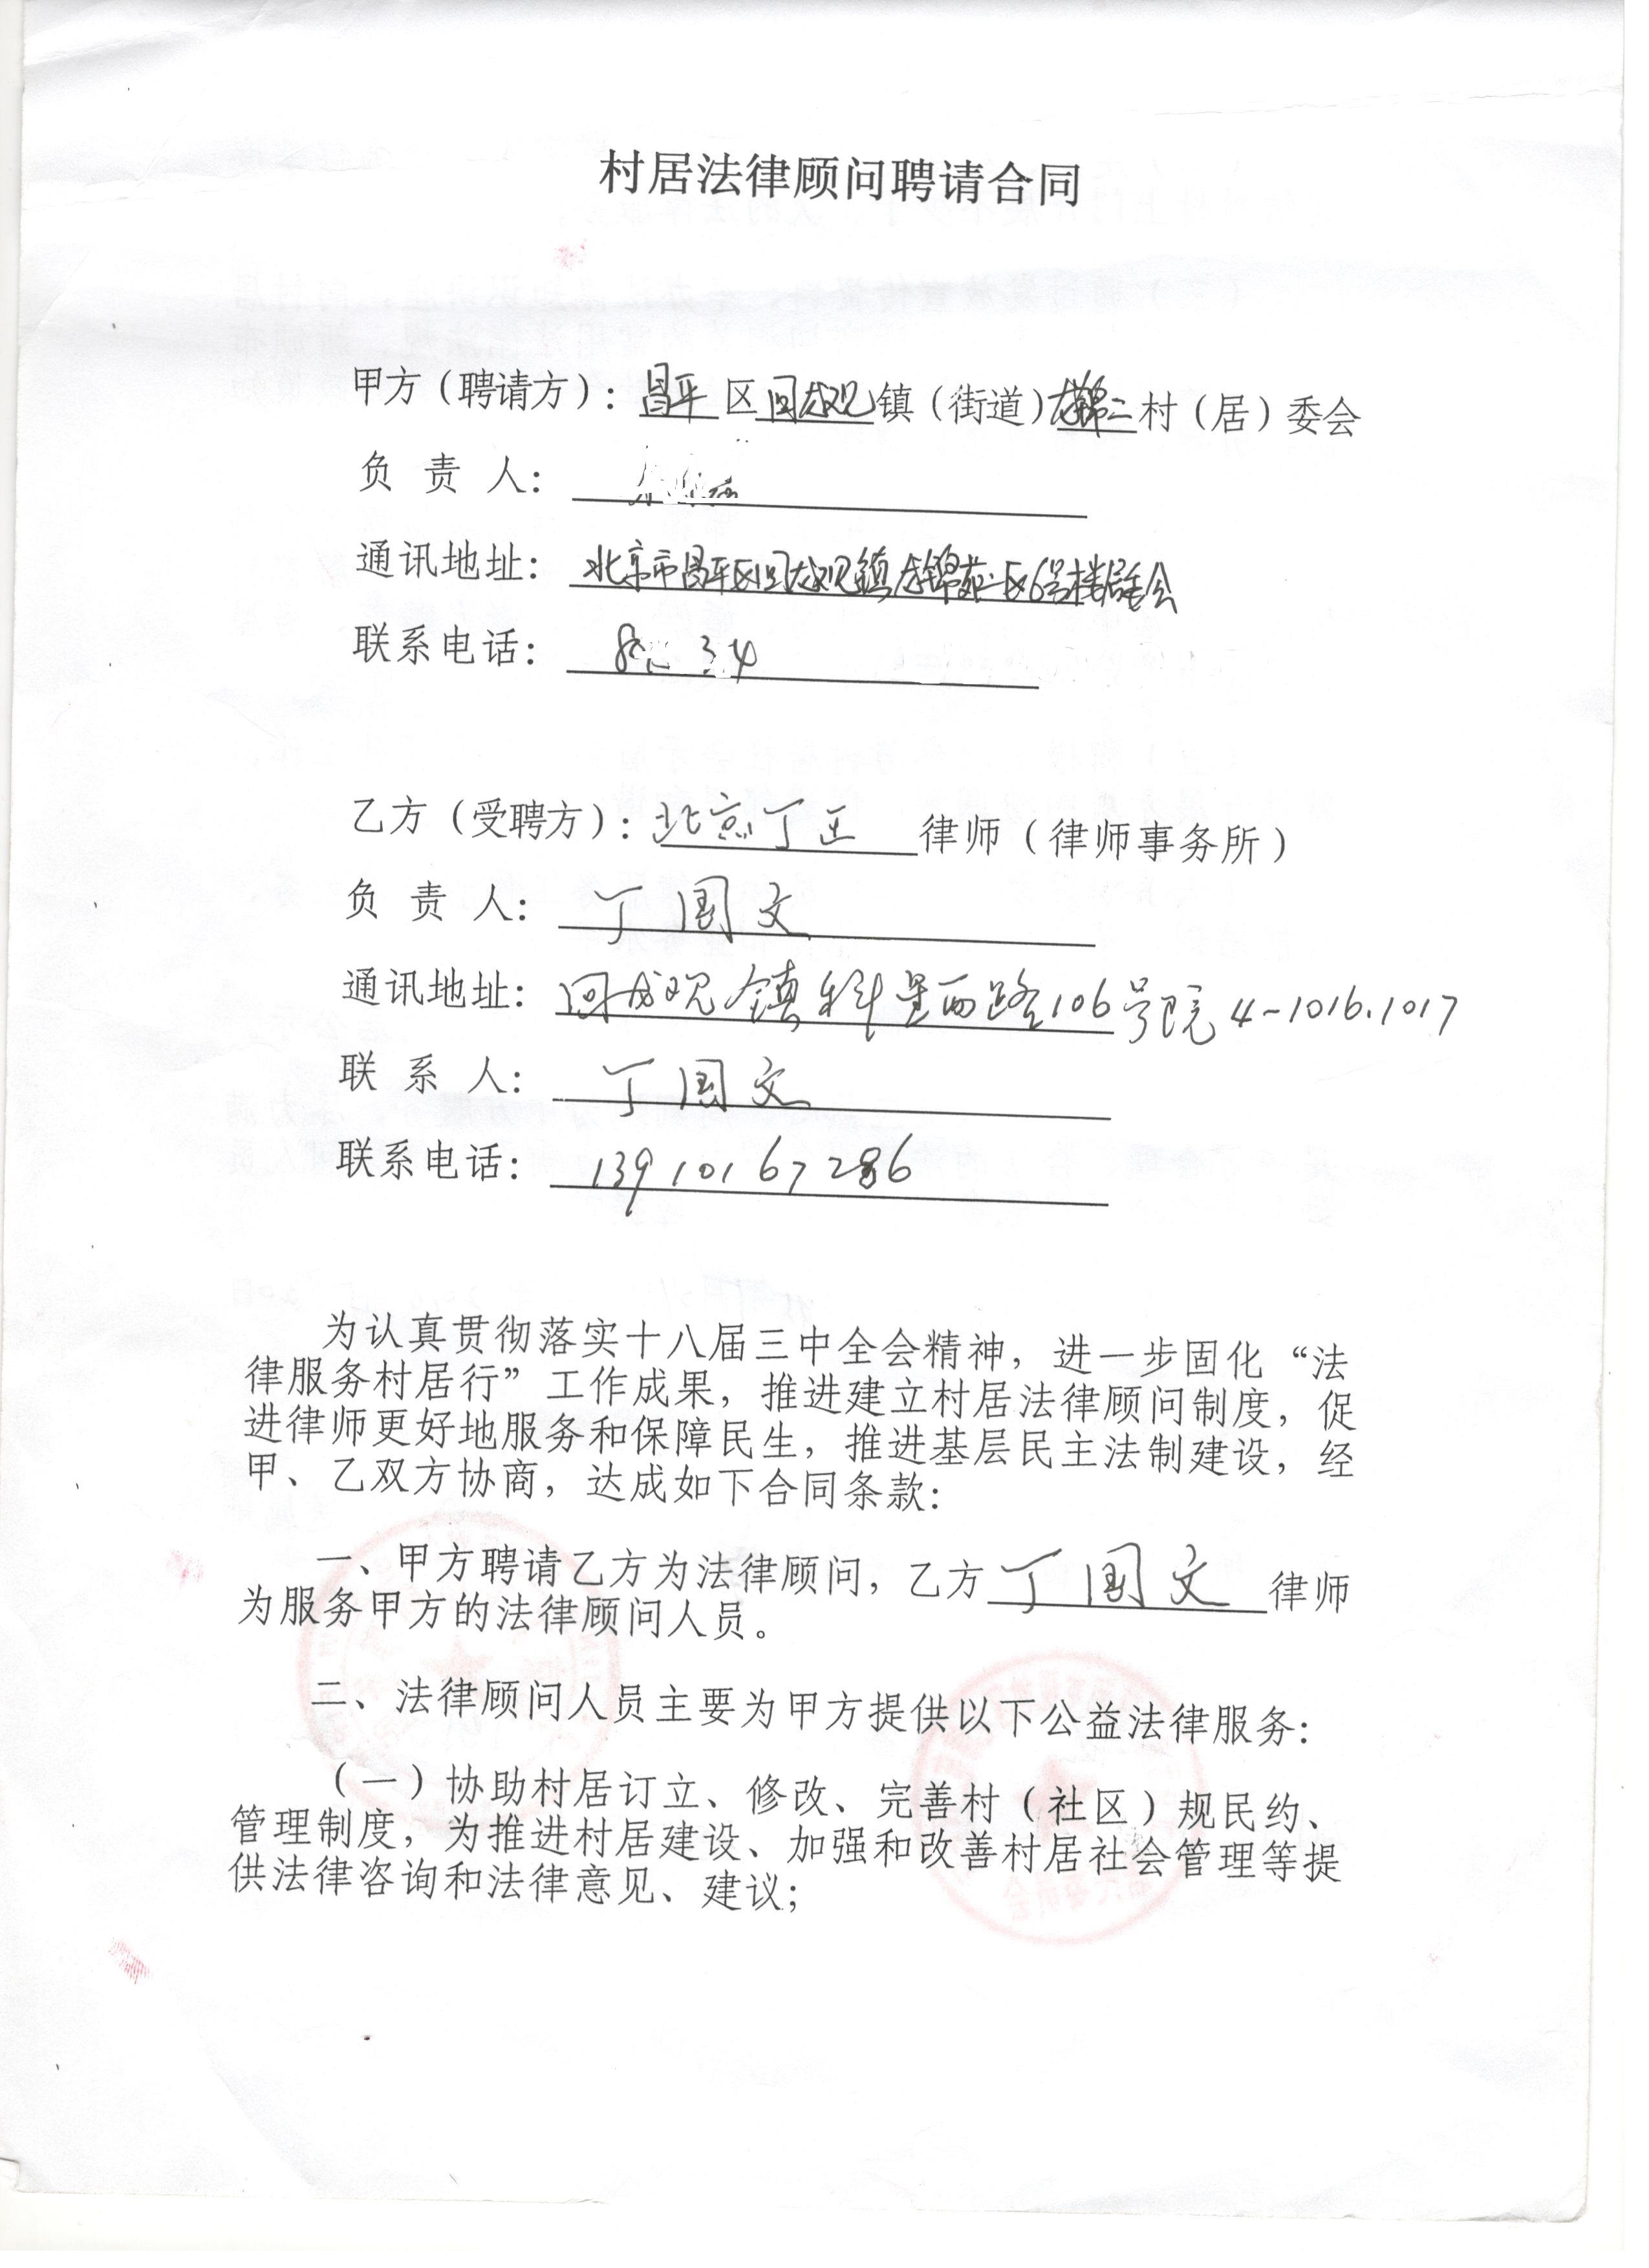 村居法律顾问聘请合同
甲方（聘请方）：昌平区回龙观镇（街道）龙锦二村（居）委会
负 责 人：
通讯地址：北京市昌平区回龙观镇龙锦苑二区6号楼居委会
联系电话：
乙方（受聘方）：北京丁正律师（律师事务所）
负 责 人：丁国文
通讯地址：回龙观镇科星西路106号院4-1016.1017
联 系 人：丁国文
联系电话：13910167286
为认真贯彻落实十八届三中全会精神，进一步固化“法
律服务村居行”工作成果，推进建立村居法律顾问制度，促
进律师更好地服务和保障民生，推进基层民主法制建设，经
甲、乙双方协商，达成如下合同条款：
一、甲方聘请乙方为法律顾问，乙方丁国文律师
为服务甲方的法律顾问人员。
二、法律顾问人员主要为甲方提供以下公益法律服务：
（一）协助村居订立、修改、完善村（社区）规民约、
管理制度，为推进村居建设、加强和改善村居社会管理等提
供法律咨询和法律意见、建议；